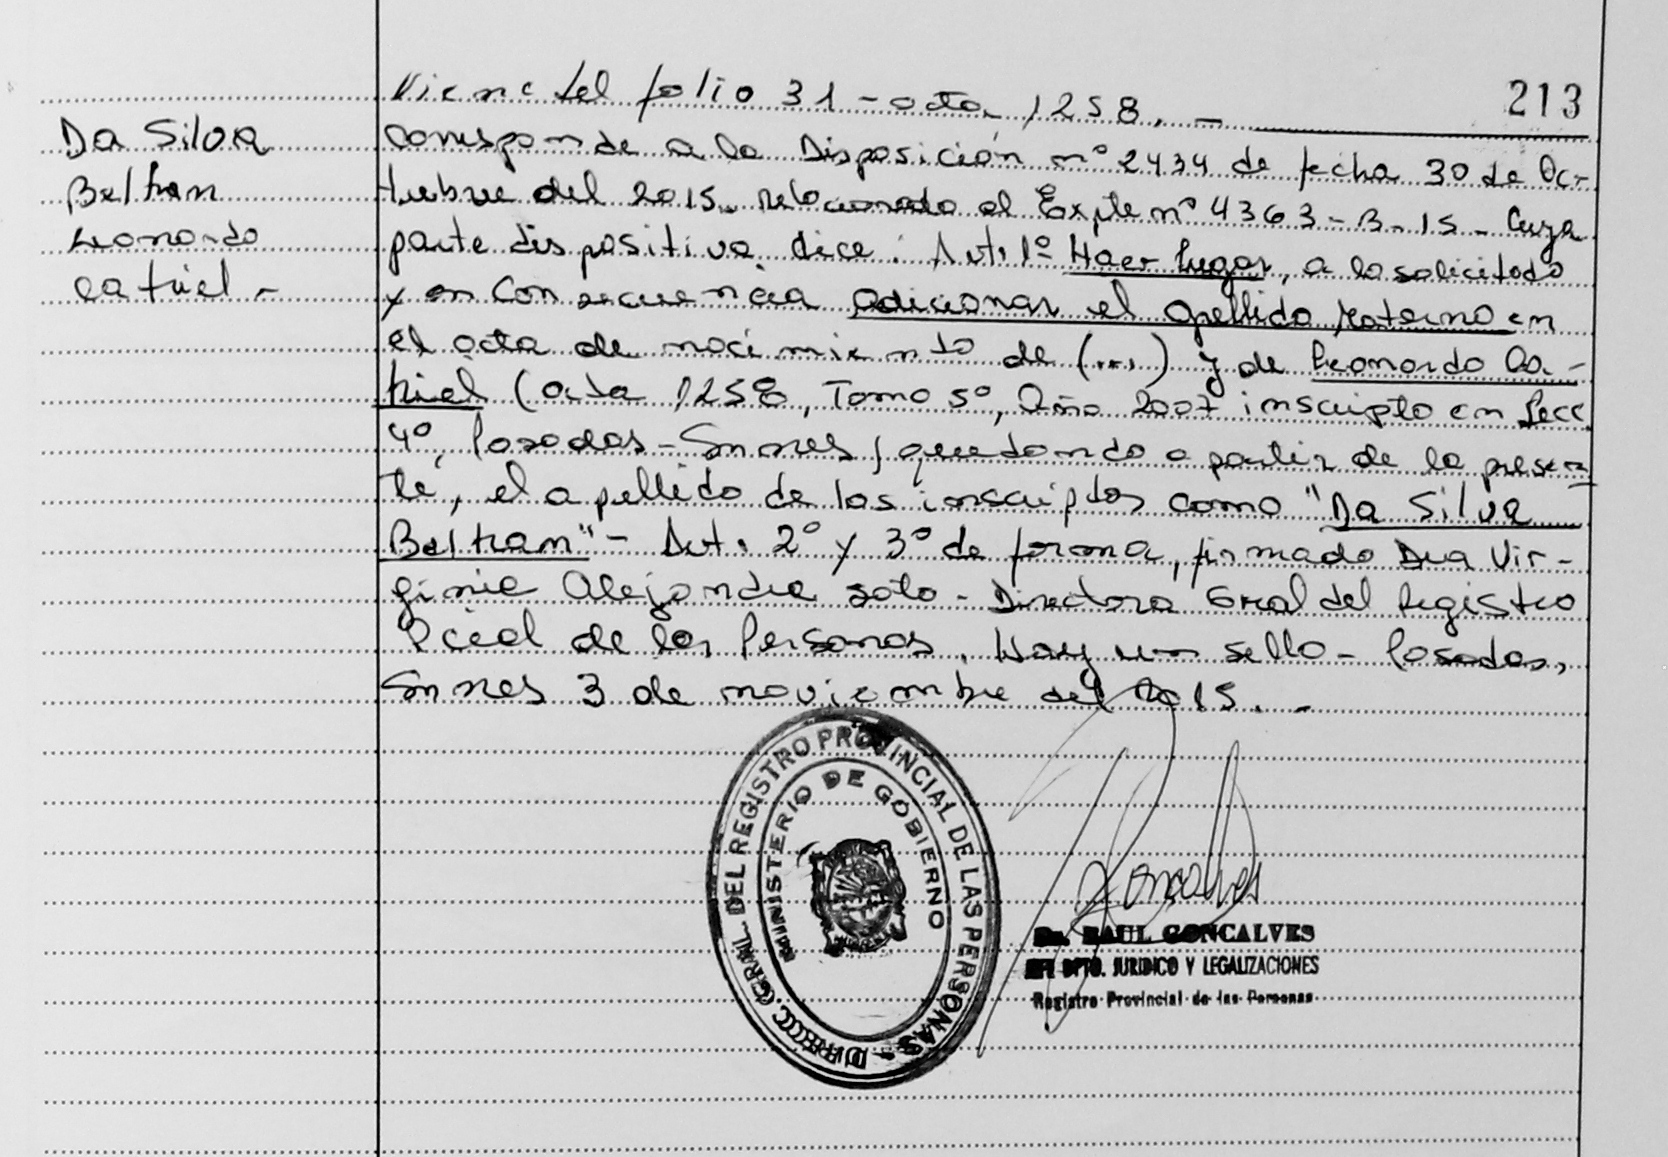 213
Viene del folio 31 - acta 1258. -
Da Silva
Beltran
Leonardo
Catriel -
Corresponde a la Disposición nº 2434 de fecha 30 de Oc-
tubre del 2015. relacionado al Expte nº 4363-B-15 - Cuya
parte dispositiva dice: Art. 1º Hacer Lugar, a lo solicitado
y en Consecuencia adicionar el apellido Materno en
el acta de nacimiento de (...) y de Leonardo Ca-
triel (acta 1258, Tomo 5º, Año 2007 inscripto en Secc
4º, Posadas - Smnes, quedando a partir de la presen-
te, el apellido de los inscriptos como "Da Silva
Beltran" - Art. 2º y 3º de forma, firmado Dra Vir-
ginia Alejandra Soto - Directora Gral del Registro
Pcial de las Personas. Hay un sello - Posadas,
Smnes 3 de noviembre del 2015. -
DIRECC. GRAL. DEL REGISTRO PROVINCIAL DE LAS PERSONAS
MINISTERIO DE GOBIERNO
Goncalves
Dr. RAUL GONCALVES
JEFE DPTO. JURIDICO Y LEGALIZACIONES
Registro Provincial de las Personas